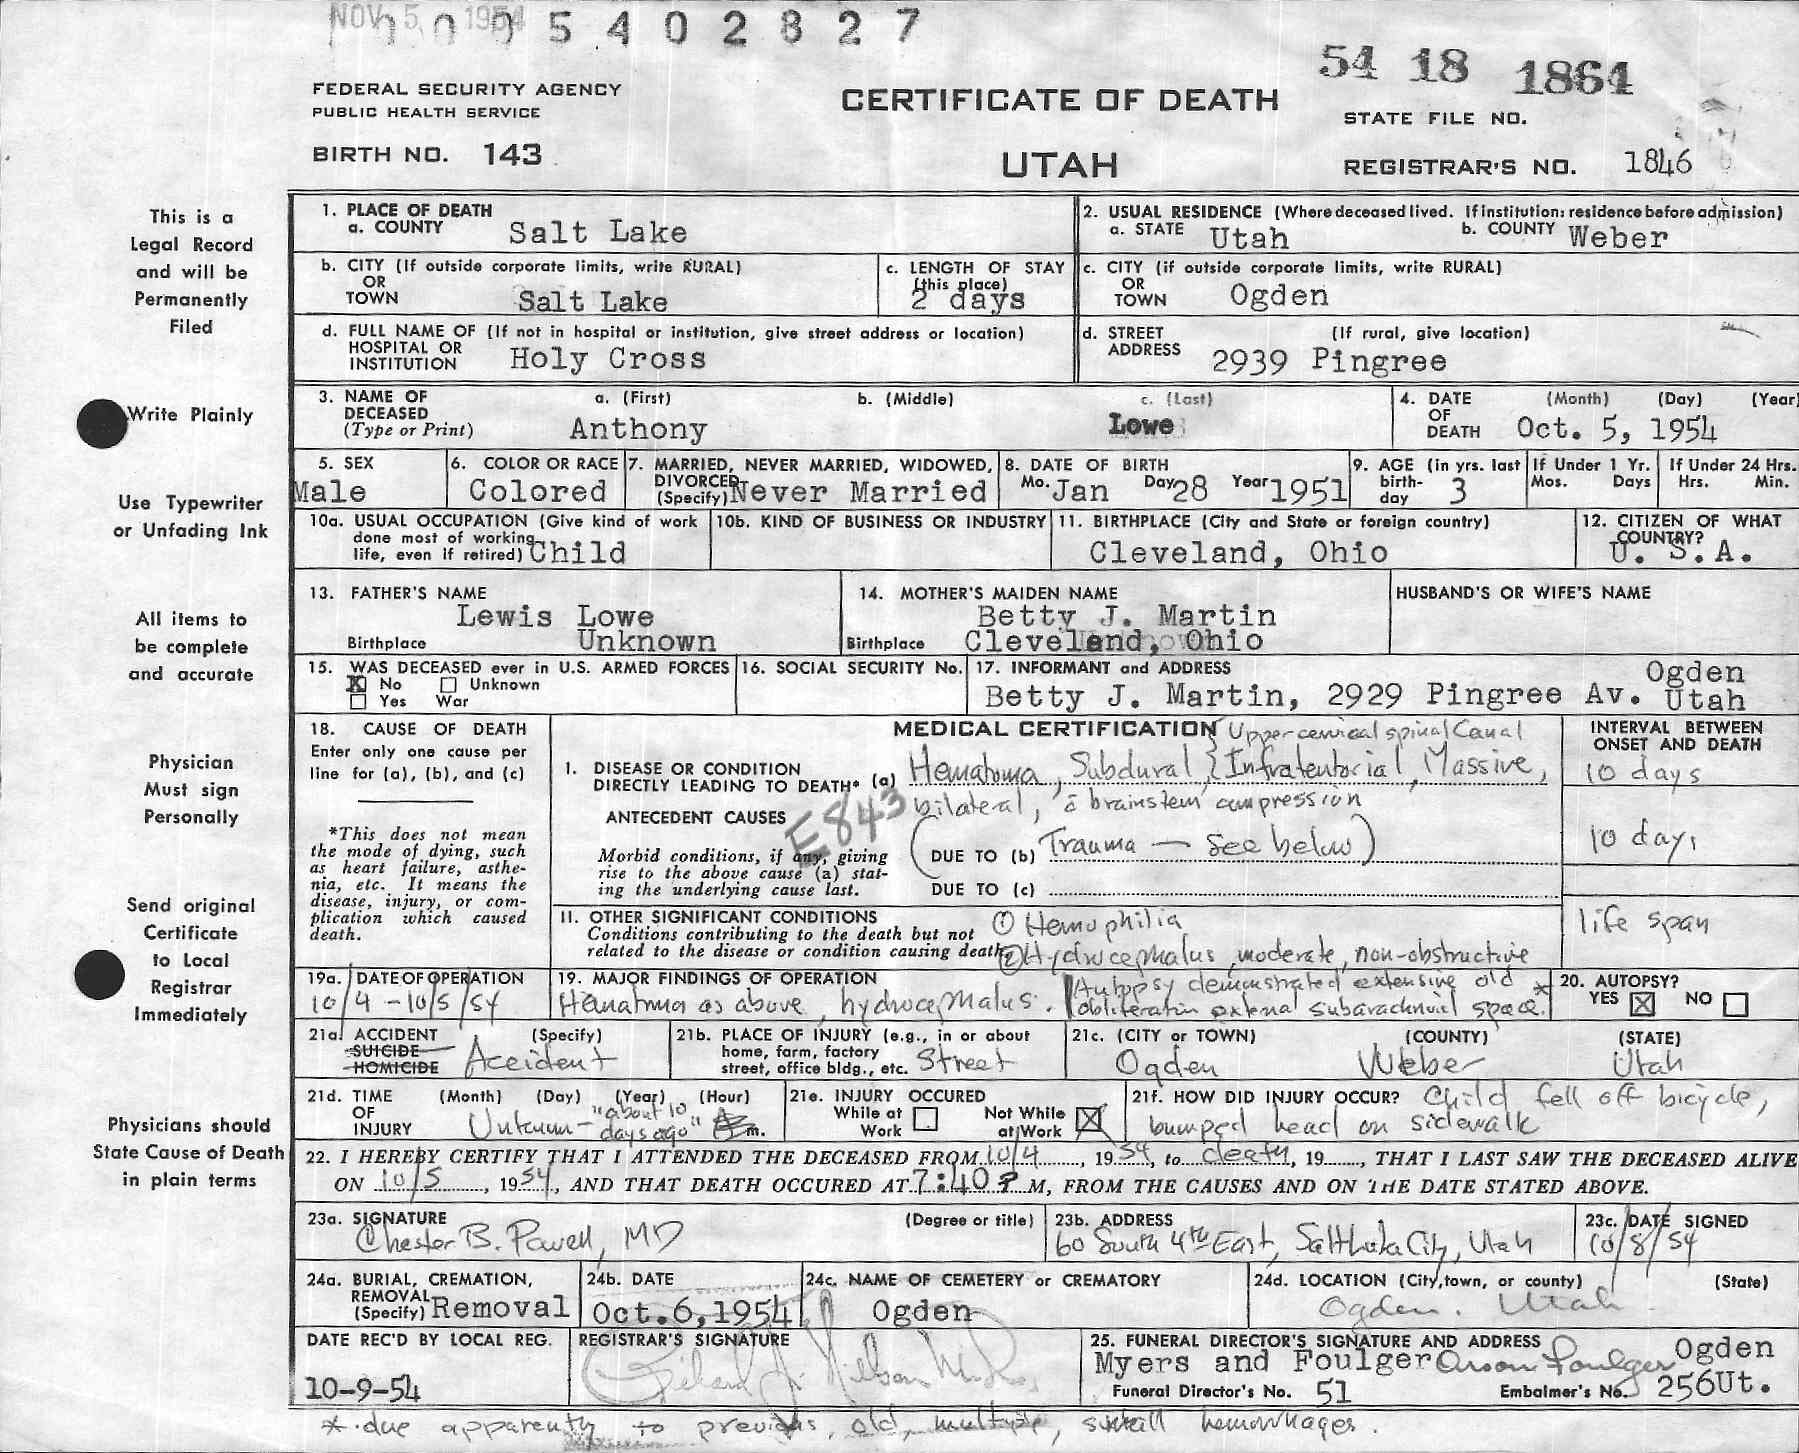 NOV 15 1954
1 0 0 5 4 0 2 8 2 7
54 18 1864
FEDERAL SECURITY AGENCY
PUBLIC HEALTH SERVICE
CERTIFICATE OF DEATH
STATE FILE NO.
BIRTH NO. 143
UTAH
REGISTRAR'S NO. 1846
This is a
Legal Record
and will be
Permanently
Filed
Write Plainly
Use Typewriter
or Unfading Ink
All items to
be complete
and accurate
Physician
Must sign
Personally
Send original
Certificate
to Local
Registrar
Immediately
Physicians should
State Cause of Death
in plain terms
1. PLACE OF DEATH
a. COUNTY Salt Lake
2. USUAL RESIDENCE (Where deceased lived. If institution: residence before admission)
a. STATE Utah b. COUNTY Weber
b. CITY (If outside corporate limits, write RURAL)
OR
TOWN Salt Lake
c. LENGTH OF STAY
(this place)
2 days
c. CITY (if outside corporate limits, write RURAL)
OR
TOWN Ogden
d. FULL NAME OF (If not in hospital or institution, give street address or location)
HOSPITAL OR
INSTITUTION Holy Cross
d. STREET (If rural, give location)
ADDRESS 2939 Pingree
3. NAME OF a. (First) b. (Middle) c. (Last)
DECEASED
(Type or Print) Anthony Lowe
4. DATE (Month) (Day) (Year)
OF
DEATH Oct. 5, 1954
5. SEX
Male
6. COLOR OR RACE
Colored
7. MARRIED, NEVER MARRIED, WIDOWED,
DIVORCED
(Specify) Never Married
8. DATE OF BIRTH
Mo. Jan Day 28 Year 1951
9. AGE (in yrs. last
birth-
day 3
If Under 1 Yr.
Mos. Days
If Under 24 Hrs.
Hrs. Min.
10a. USUAL OCCUPATION (Give kind of work
done most of working
life, even if retired) Child
10b. KIND OF BUSINESS OR INDUSTRY
11. BIRTHPLACE (City and State or foreign country)
Cleveland, Ohio
12. CITIZEN OF WHAT
COUNTRY?
U. S. A.
13. FATHER'S NAME
Lewis Lowe
Birthplace Unknown
14. MOTHER'S MAIDEN NAME
Betty J. Martin
Birthplace Cleveland, Ohio
HUSBAND'S OR WIFE'S NAME
15. WAS DECEASED ever in U.S. ARMED FORCES
X No Unknown
Yes War
16. SOCIAL SECURITY No.
17. INFORMANT and ADDRESS Ogden
Betty J. Martin, 2929 Pingree Av. Utah
18. CAUSE OF DEATH
Enter only one cause per
line for (a), (b), and (c)
*This does not mean
the mode of dying, such
as heart failure, asthe-
nia, etc. It means the
disease, injury, or com-
plication which caused
death.
MEDICAL CERTIFICATION Upper cervical spinal Canal
I. DISEASE OR CONDITION
DIRECTLY LEADING TO DEATH* (a) Hematoma, Subdural, Infratentorial, Massive,
bilateral, c̄ brainstem compression
E843
ANTECEDENT CAUSES
Morbid conditions, if any, giving
rise to the above cause (a) stat-
ing the underlying cause last.
DUE TO (b) Trauma — See below)
DUE TO (c)
INTERVAL BETWEEN
ONSET AND DEATH
10 days
10 days
II. OTHER SIGNIFICANT CONDITIONS
Conditions contributing to the death but not
related to the disease or condition causing death.
① Hemophilia
② Hydrocephalus, moderate, non-obstructive
life span
19a. DATE OF OPERATION
10/4 - 10/5/54
19. MAJOR FINDINGS OF OPERATION
Hematoma as above, hydrocephalus.
Autopsy demonstrated extensive old *
obliteration external subarachnoid space.
20. AUTOPSY?
YES X NO
21a. ACCIDENT (Specify)
SUICIDE
HOMICIDE Accident
21b. PLACE OF INJURY (e.g., in or about
home, farm, factory
street, office bldg., etc. Street
21c. (CITY or TOWN) (COUNTY) (STATE)
Ogden Weber Utah
21d. TIME (Month) (Day) (Year) (Hour)
OF
INJURY Unknown - "about 10
days ago" m.
21e. INJURY OCCURED
While at Not While
Work at Work X
21f. HOW DID INJURY OCCUR? Child fell off bicycle,
bumped head on sidewalk
22. I HEREBY CERTIFY THAT I ATTENDED THE DECEASED FROM 10/4, 1954, to death, 19...., THAT I LAST SAW THE DECEASED ALIVE
ON 10/5, 1954, AND THAT DEATH OCCURED AT 7:40 P M, FROM THE CAUSES AND ON THE DATE STATED ABOVE.
23a. SIGNATURE (Degree or title)
Chester B. Powell, MD
23b. ADDRESS
60 South 4th East, Salt Lake City, Utah
23c. DATE SIGNED
10/8/54
24a. BURIAL, CREMATION,
REMOVAL
(Specify) Removal
24b. DATE
Oct. 6, 1954
24c. NAME OF CEMETERY or CREMATORY
Ogden
24d. LOCATION (City, town, or county) (State)
Ogden. Utah
DATE REC'D BY LOCAL REG.
10-9-54
REGISTRAR'S SIGNATURE
25. FUNERAL DIRECTOR'S SIGNATURE AND ADDRESS Ogden
Myers and Foulger Orson Foulger
Funeral Director's No. 51 Embalmer's No. 256 Ut.
* due apparently to previous, old, multiple, small hemorrhages.